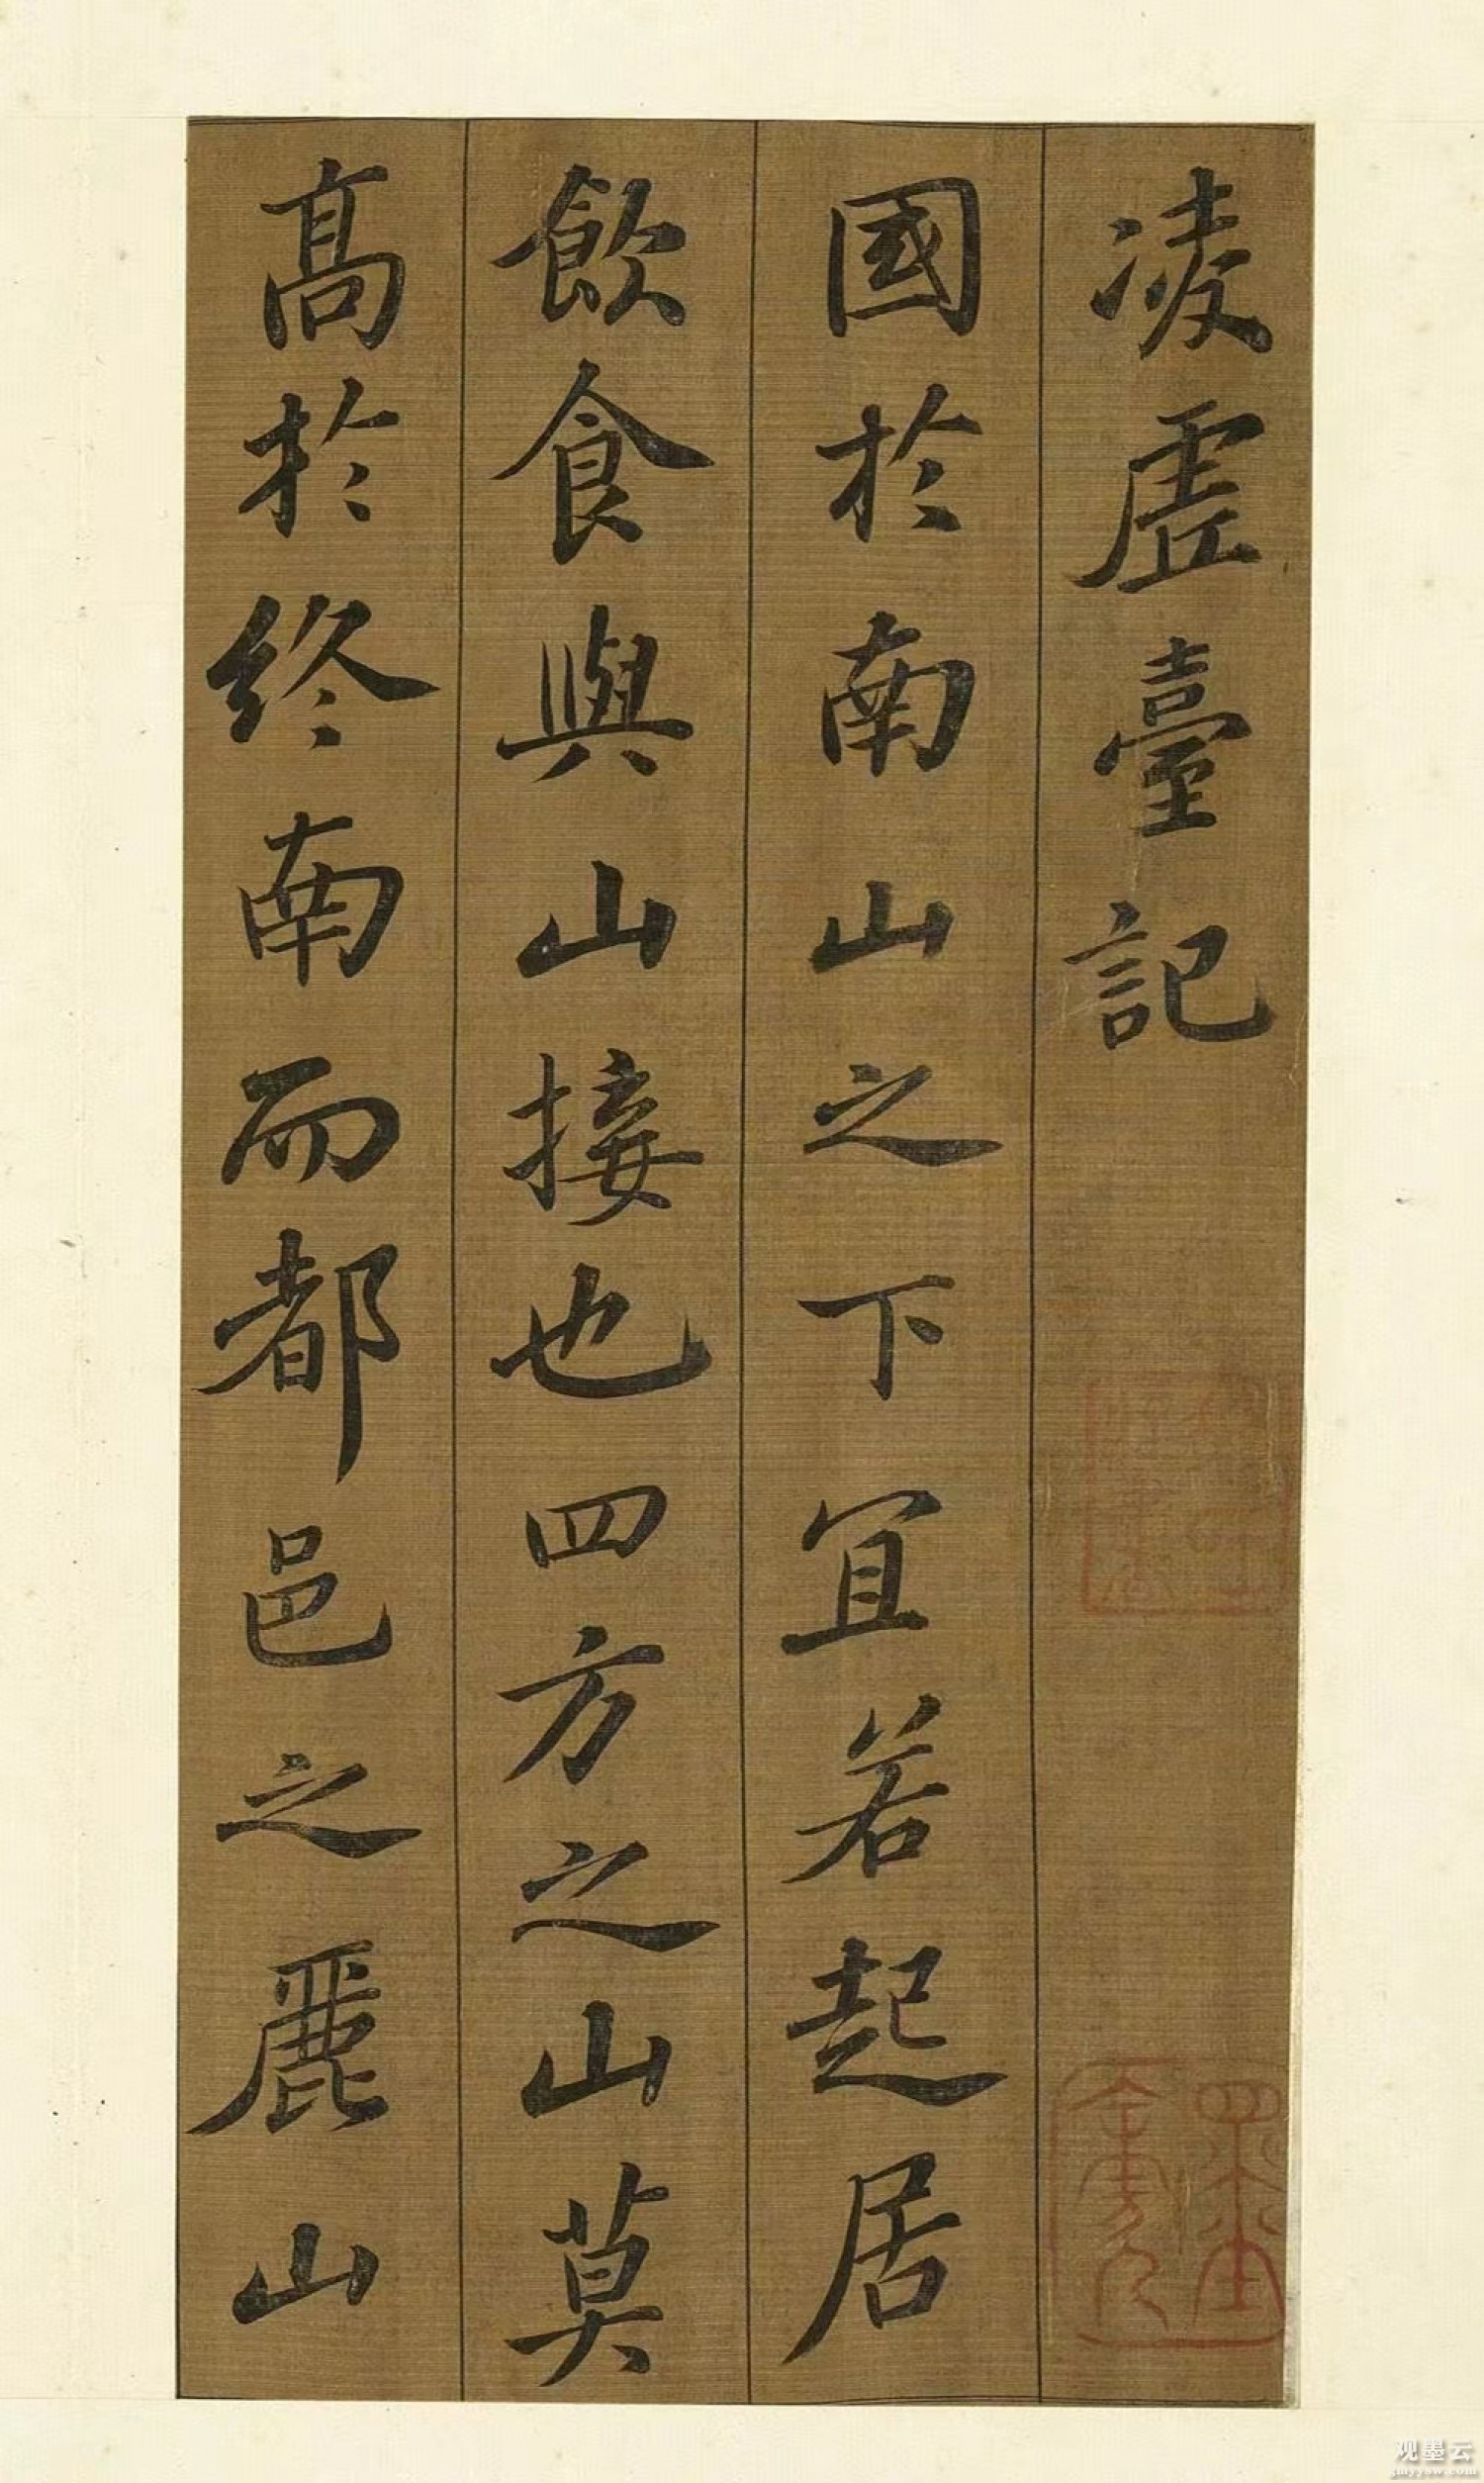 凌虛臺記
國於南山之下宜若起居
飲食與山接也四方之山莫
高於終南而都邑之麗山
观墨云
jmyysw.com